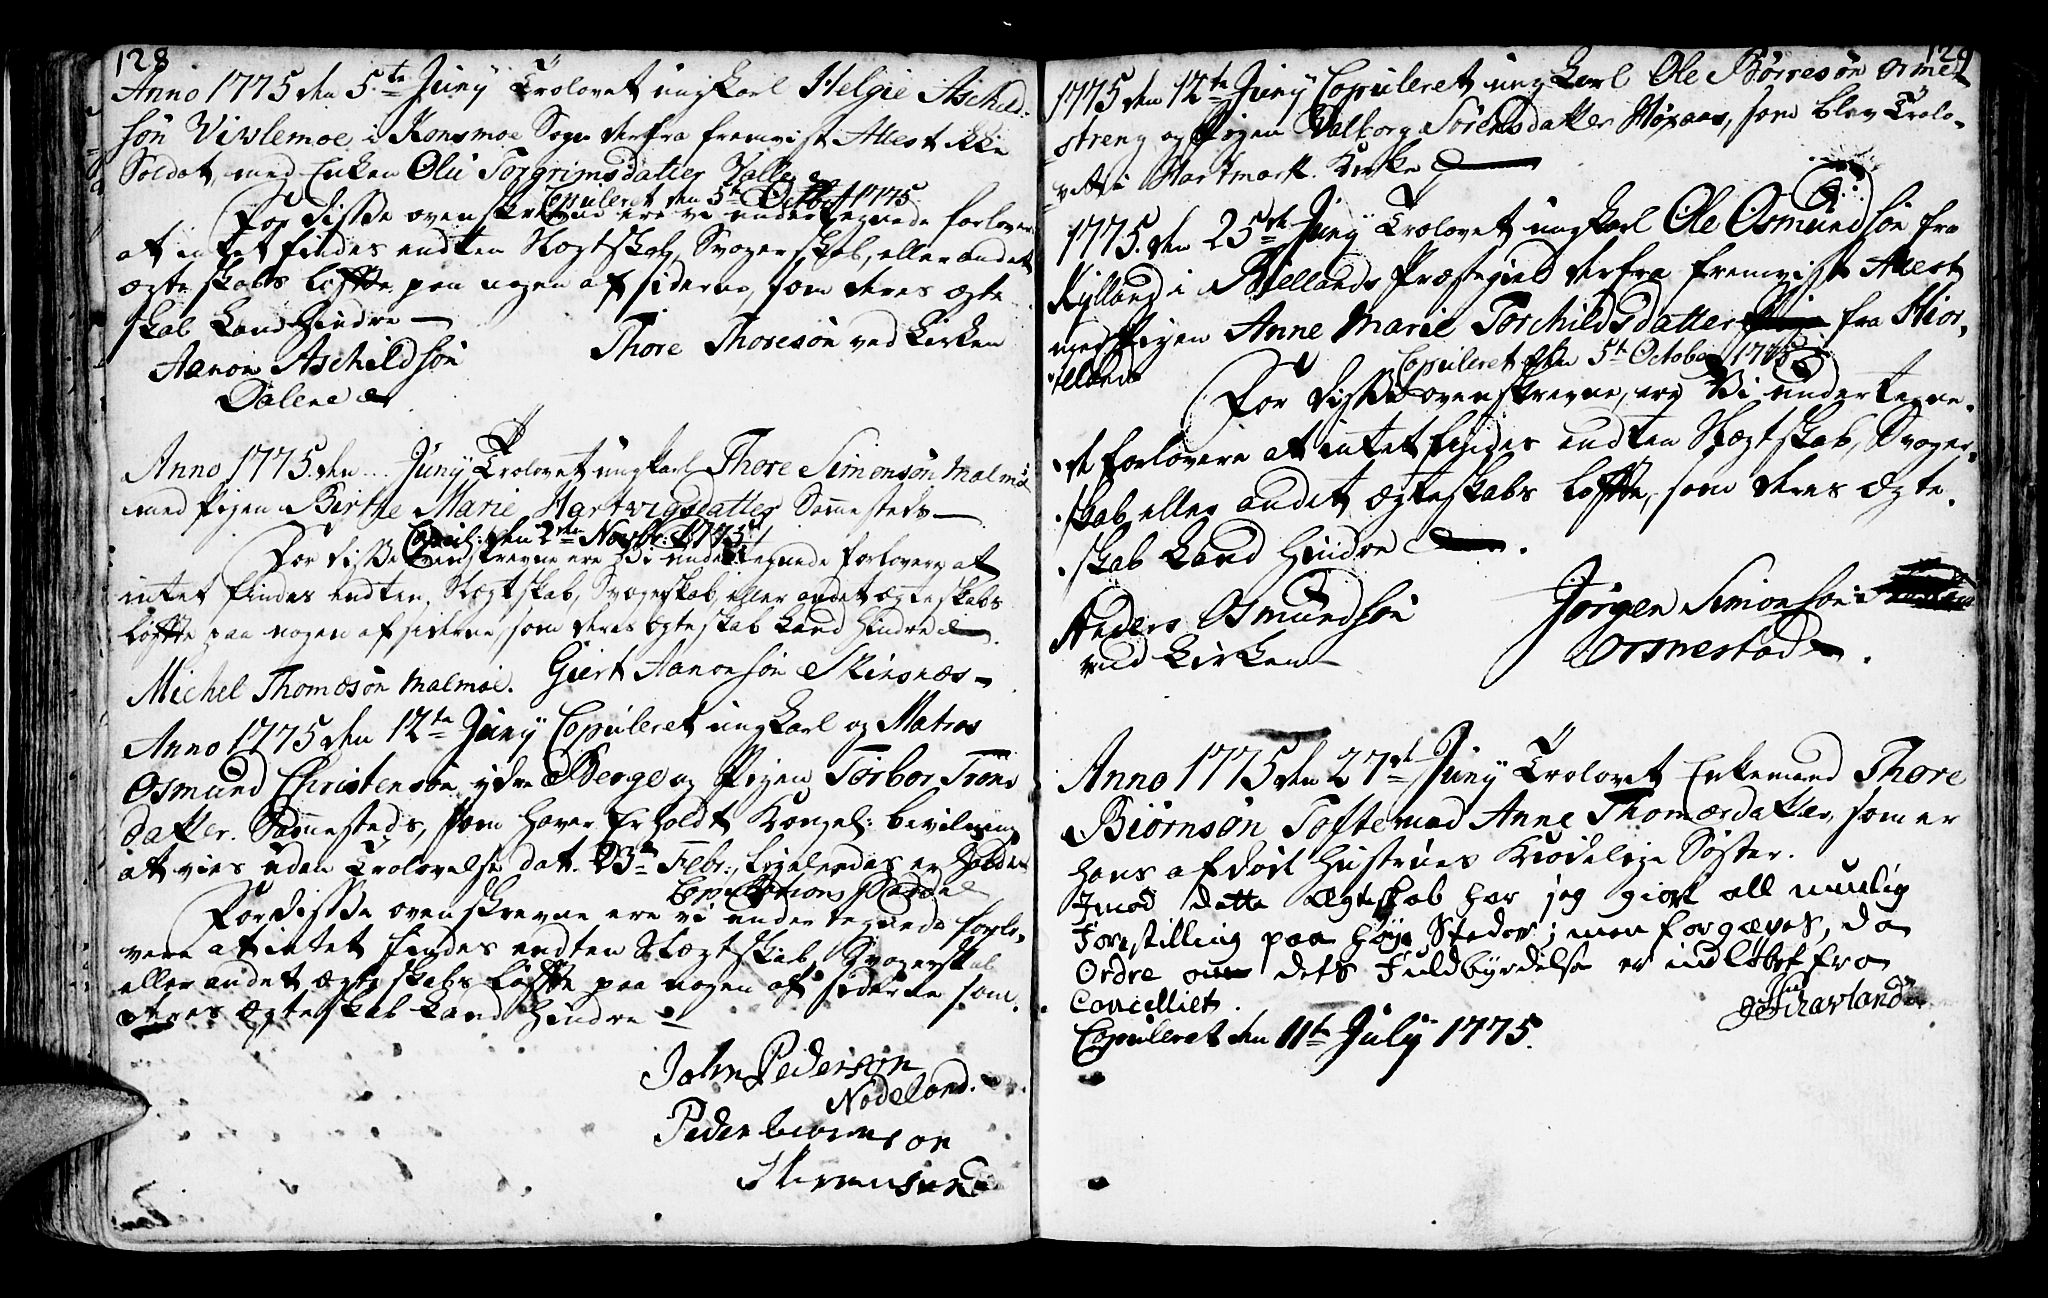 128
Anno 1775 den 5te Juny Trolovet ungkarl Helgie Aschild-
søn Vivlemoe, i Konsmoe Sogn derfra fremvist Attest ikke
Soldat, med Enken Olu Torgrimsdatter Valle
Copuleret den 5te October 1775
For disse ovenskrevne ere vi undertegnede forlovere
at intet findes endten Slægtskab, Svogerskab, eller andet
ægteskabs løffte paa nogen af siderne, som deres ægte
skab kand hindre
Aanon Aschildsøn
Thore Thoresøn ved Kirken
Dalene
Anno 1775 den .. Juny Trolovet ungkarl Thore Simonsøn Malmøe
med Pigen Birthe Marie Hartvigsdatter Sammesteds
Copul: den 2den Novbr: 1775
For disse ovenskrevne ere Vi undertegnede forlovere at
intet findes endten Slægtskab, Svogerskab, eller andet ægteskabs
løffte paa nogen af siderne, som deres ægteskab kand hindre
Michel Thomæsøn Malmøe. Giert Aanonsøn Skinsnæs
Anno 1775 den 12te Juny Copuleret ungkarl og Matros
Osmund Christensøn ydre Berge og Pigen Torbor Trons
datter. Sammesteds, som haver Erholdt Kongel: bevilning
at vies uden Trolovelse dat. 23de Febr:, ligeledes er
Copulations
For disse ovenskrevne ere vi undertegnede forlo-
vere at intet findes endten Slægtskab, Svogerskab
eller andet ægteskabs løffte paa nogen af siderne som
deres ægteskab kand hindre
John Pedersøn
Nodeland.
Peder
129
1775 den 12te Juny Copuleret ungkarl Ole Børresøn Orme-
streng og Pigen Valborg Sørensdatter som blev Trolo-
vet i Hartmark Kirke
1775 den 25de Juny Trolovet ungkarl Ole Osmundsøn fra
Kylland i Biellands Præstegield derfra fremvist Attest
med Pigen Anne Marie Torchildsdatter fra Hior-
Copuleret den 5te October 1775
For disse ovenskrevne, ere Vi undertegne-
de forlovere at intet findes endten Slægtskab, Svoger-
skab eller andet ægteskabs løffte, som deres ægte-
skab kand hindre
Anders Osmundsøn
Jørgen Simonsøn
ved Kirken
Ormestad
Anno 1775 den 27de Juny Trolovet Enkemand Thore
Biørnsøn Tofte med Anne Thomæsdatter, som er
hans afdød Hustrues Kiødelige Søster.
Imod dette Ægteskab har jeg giort all muulig
Forestilling paa høye Steder; men forgæves, da
Ordre om dets Fuldbyrdelse er indløbet fra
Cancelliet.
Copuleret den 11te July 1775.